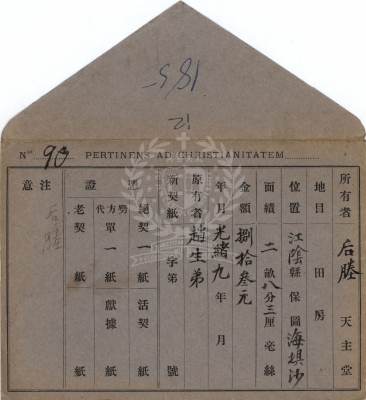 185-
12
Nᵒˢ 90 PERTINENS AD CHRISTIANITATEM
所有者 后塍 天主堂
地目 田房
位置 江陰縣保圖海垻沙
面績 二畝八分三厘毫絲
金額 捌拾叁元
年月 光緒九年 月
原有者 趙生弟
新契紙 字第 號
證 絕契一紙活契 紙
代方單一紙獻據 紙
老契 紙 紙
注意
后塍